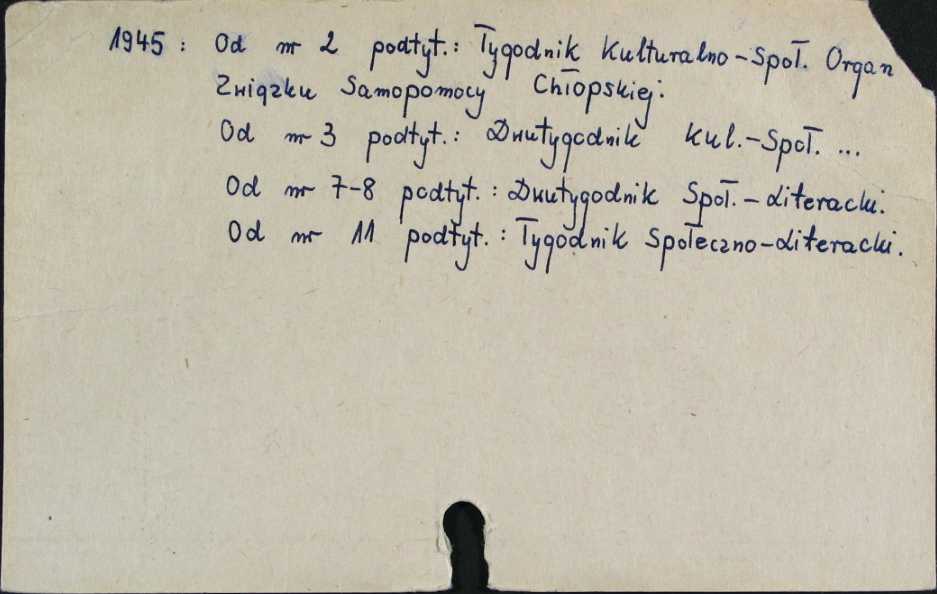 1945: Od nr 2 podtyt.: Tygodnik Kulturalno-Społ. Organ
Związku Samopomocy Chłopskiej.
Od nr 3 podtyt.: Dwutygodnik Kul.-Społ. ...
Od nr 7-8 podtyt.: Dwutygodnik Społ.-Literacki.
Od nr 11 podtyt.: Tygodnik Społeczno-Literacki.